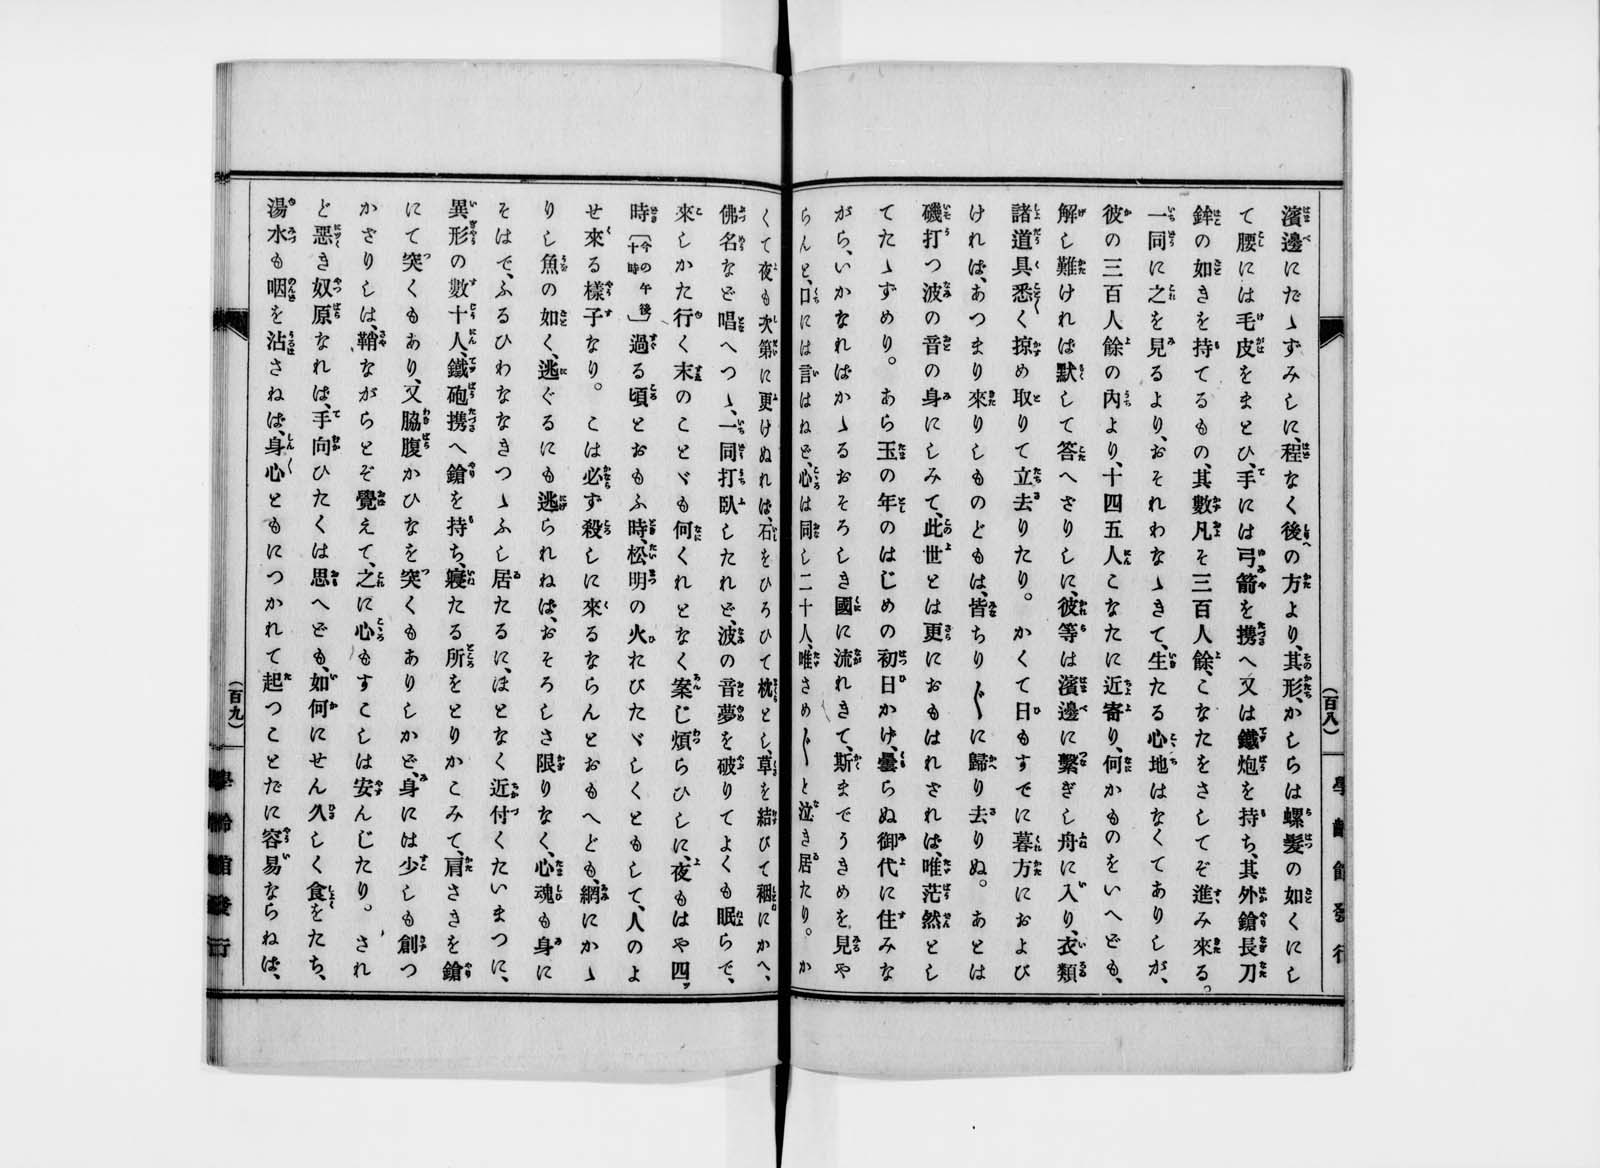 濱邊にたゝずみしに、程なく後の方より、其形、かしらは螺髮の如くにし
て腰には毛皮をまとひ、手には弓箭を携へ又は鐵炮を持ち、其外鎗長刀
鉾の如きを持てるもの、其數凡そ三百人餘、こなたをさしてぞ進み來る。
一同に之を見るより、おそれわなゝきて、生たる心地はなくてありしが、
彼の三百人餘の內より、十四五人こなたに近寄り、何かものをいへども、
解し難ければ默して答へさりしに、彼等は濱邊に繫ぎし舟に入り、衣類
諸道具悉く掠め取りて立去りたり。かくて日もすでに暮方におよび
ければ、あつまり來りしものどもは、皆ちり〴〵に歸り去りぬ。あとは
磯打つ波の音の身にしみて、此世とは更におもはれされば、唯茫然とし
てたゝずめり。あら玉の年のはじめの初日かけ、曇らぬ御代に住みな
がら、いかなればかゝるおそろしき國に流れきて、斯までうきめを見や
らんと、口には言はねど、心は同し二十人、唯さめ〴〵と泣き居たり。か
（百八）
學齡館發行
くて夜も次第に更けぬれば、石をひろひて枕とし、草を結びて裀にかへ、
佛名など唱へつゝ、一同打臥したれど、波の音夢を破りてよくも眠らで、
來しかた行く末のことゞも何くれとなく案じ煩らひしに、夜もはや四ッ
時〔今の午後十時〕過る頃とおもふ時、松明の火れびたゞしくともして、人のよ
せ來る樣子なり。こは必ず殺しに來るならんとおもへども、網にかゝ
りし魚の如く、逃ぐるにも逃られねば、おそろしさ限りなく、心魂も身に
そはで、ふるひわななきつゝふし居たるに、ほとなく近付くたいまつに、
異形の數十人、鐵砲携へ鎗を持ち、寢たる所をとりかこみて、肩さきを鎗
にて突くもあり、又脇腹かひなを突くもありしかど、身には少しも創つ
かさりしは、鞘ながらとぞ覺えて、之に心もすこしは安んじたり。され
ど惡き奴原なれば、手向ひたくは思へども、如何にせん久しく食をたち、
湯水も咽を沾さねば、身心ともにつかれて起つことだに容易ならねば、
（百九）
學齡館發行